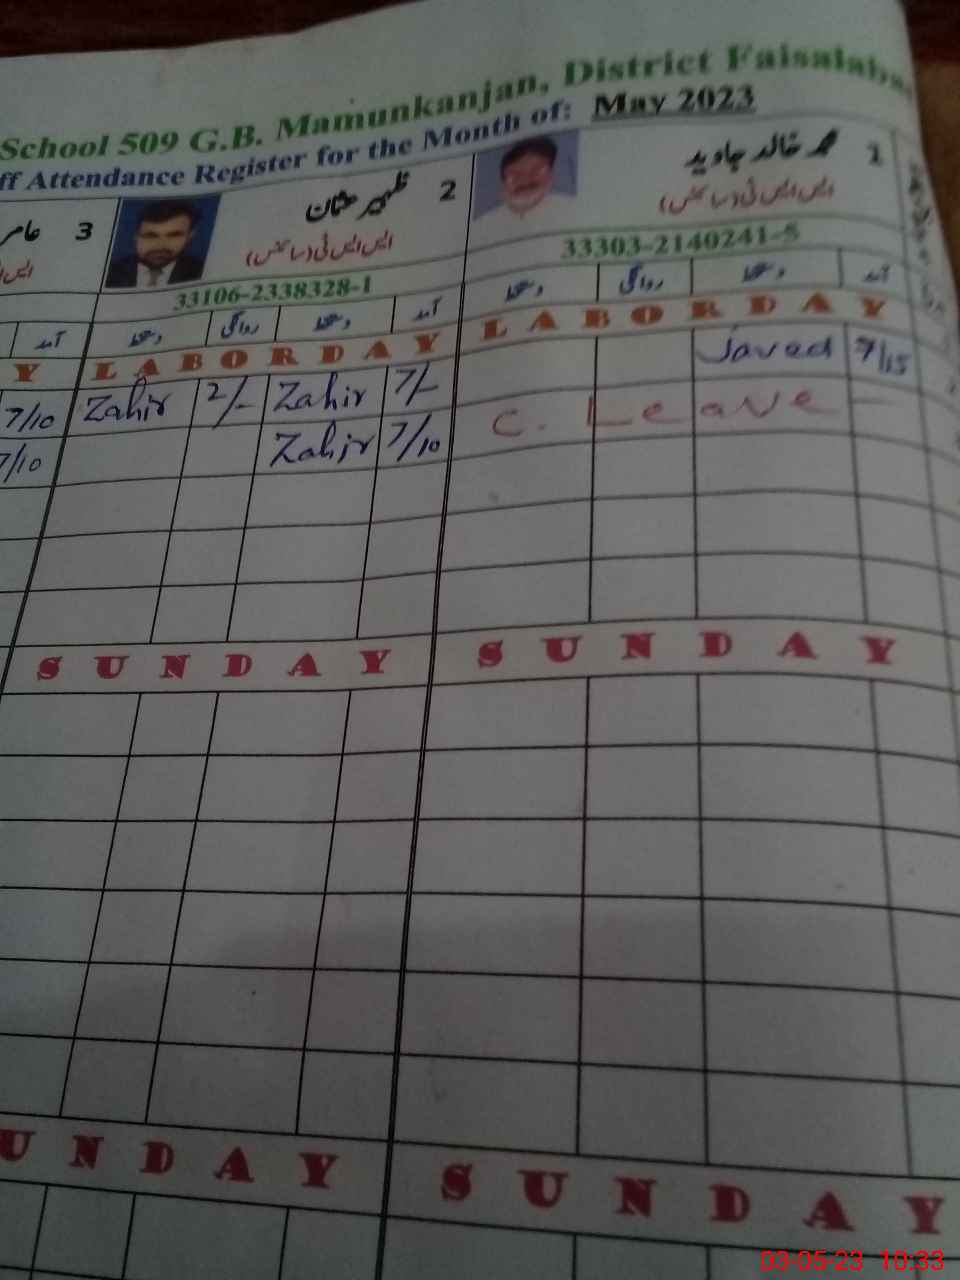 School 509 G.B. Mamunkanjan, District Faisalaba
ff Attendance Register for the Month of: May 2023
1 محمد خالد جاوید
ایس ایس ٹی (سائنس)
33303-2140241-5
آمد دستخط روانگی دستخط
LABOR DAY
7/15 Javed
C. Leave
SUNDAY
SUNDAY
2 ظہیر عثمان
ایس ایس ٹی (سائنس)
33106-2338328-1
آمد دستخط روانگی دستخط
LABOR DAY
Zahir 2/- Zahir 7/-
Zahir 7/10
SUNDAY
UNDAY
3 عامر
ایس
آمد
Y
7/10
7/10
03-05-23 10:33